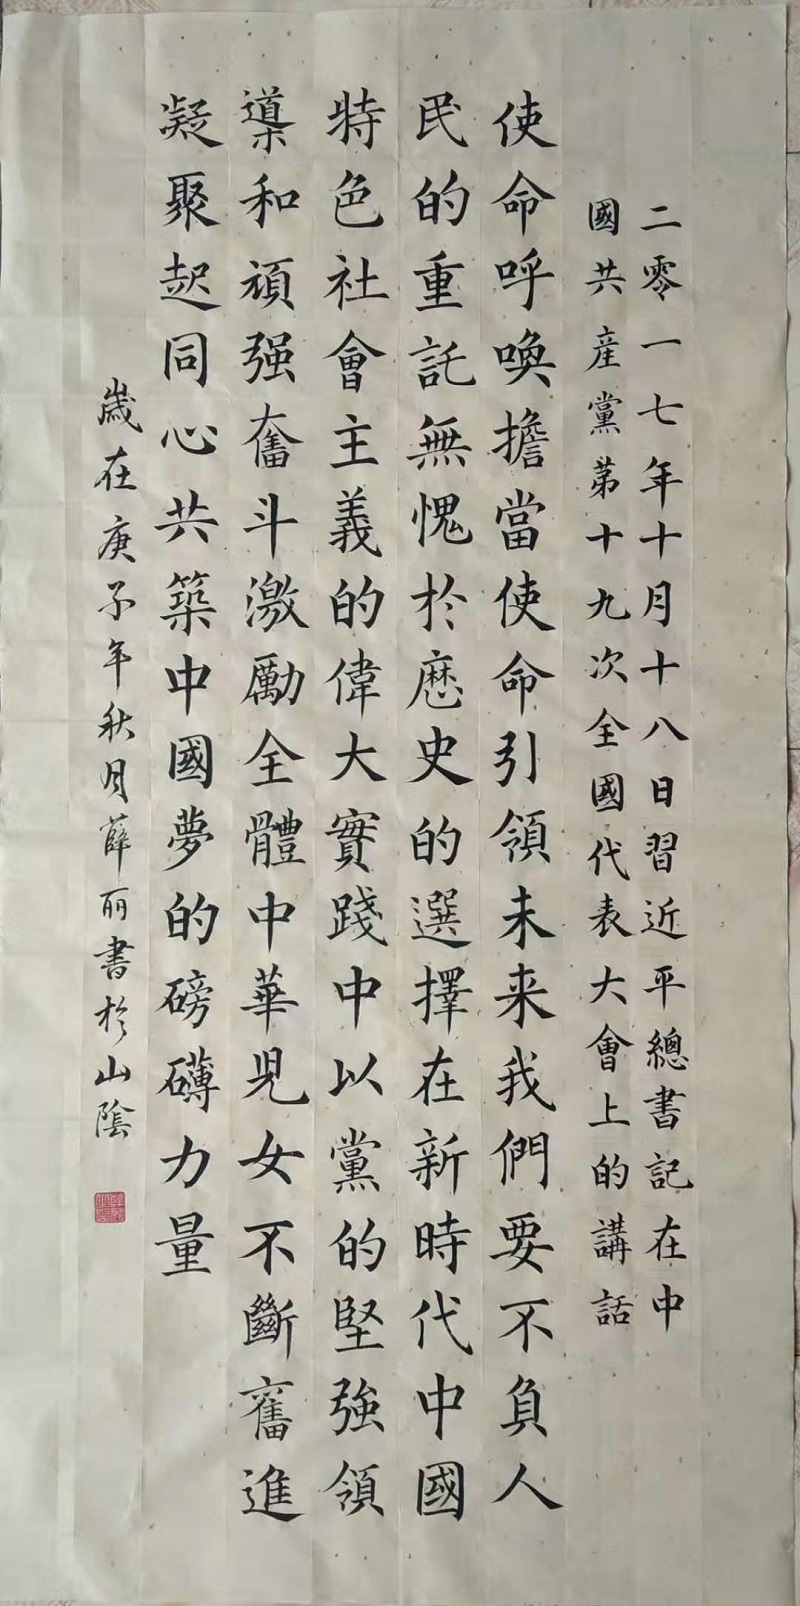 二零一七年十月十八日習近平總書記在中
國共産黨第十九次全國代表大會上的講話
使命呼喚擔當使命引領未来我們要不負人
民的重託無愧於歷史的選擇在新時代中國
特色社會主義的偉大實踐中以黨的堅強領
導和頑强奮斗激勵全體中華兒女不斷奮進
凝聚起同心共築中國夢的磅礴力量
歲在庚子年秋月薛丽書於山陰